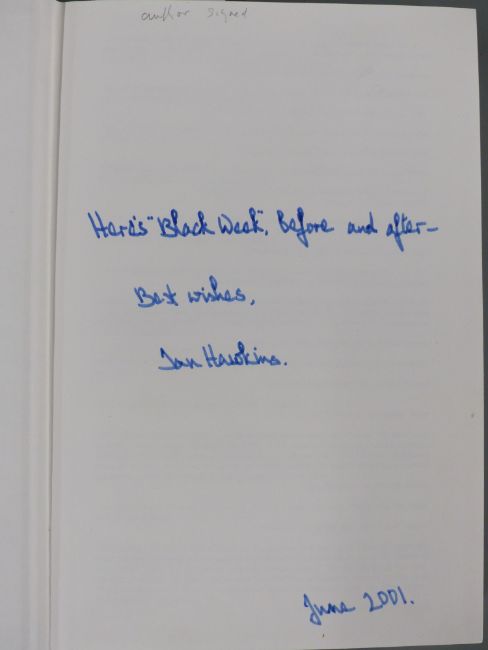 author signed
Here's "Black Week", before and after-
Best wishes,
Jan Hawkins.
June 2001.